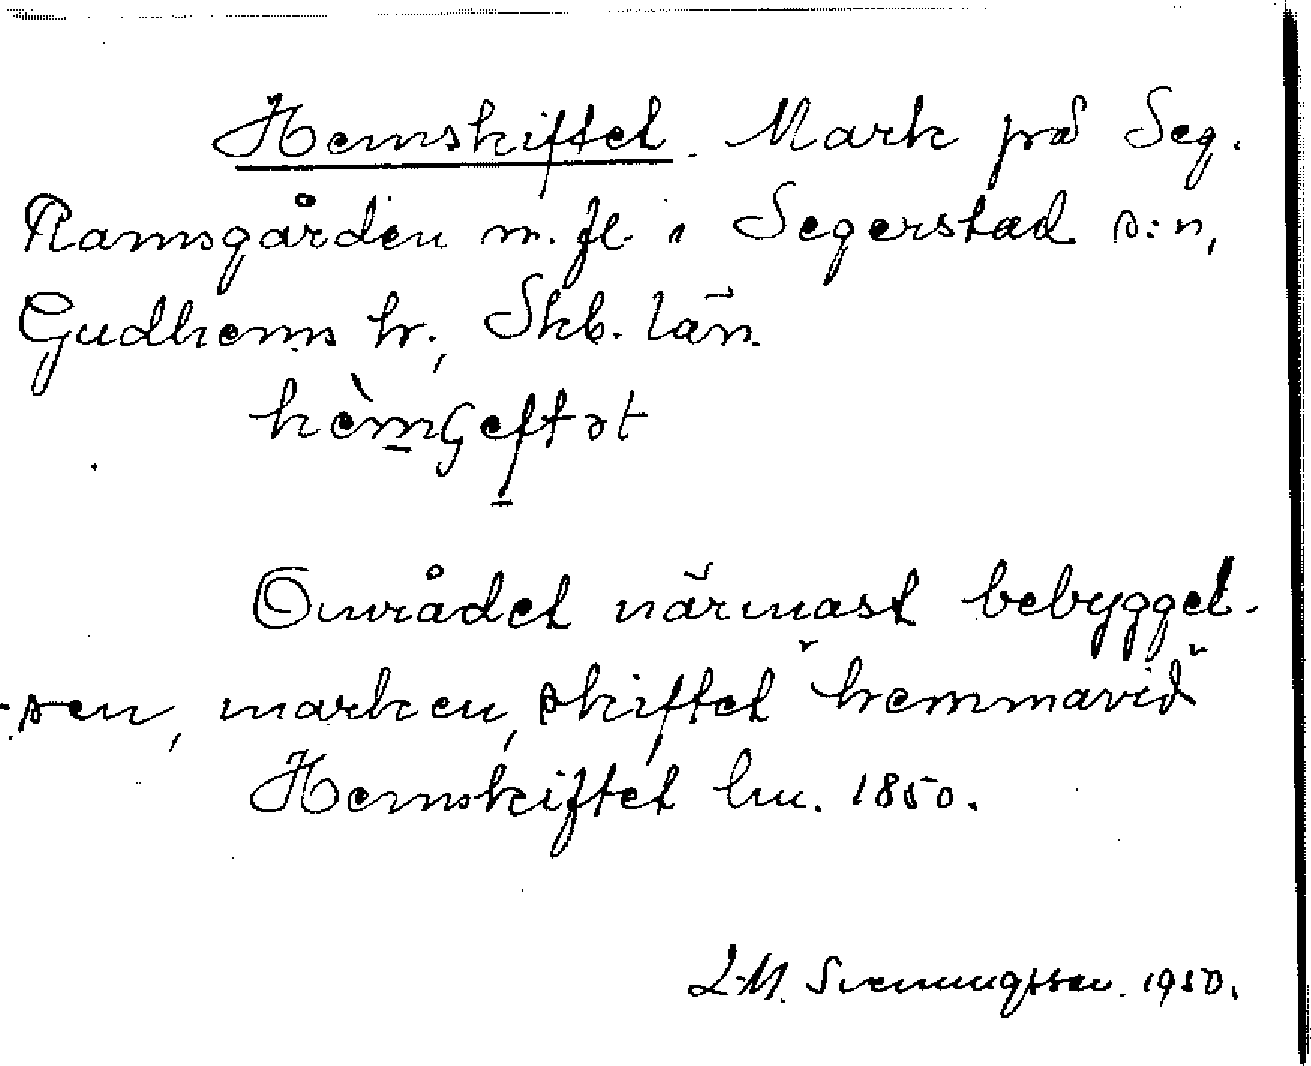 Hemskiftet. Mark på Seg.
Ramsgården m.fl. i Segerstad s:n,
Gudhems hr., Skb. län.
hèmʃeftət
Området närmast bebyggel-
sen, marken, skiftet "hemmavid"
Hemskiftet lm. 1850.
L-M. Svenungsson. 1950.